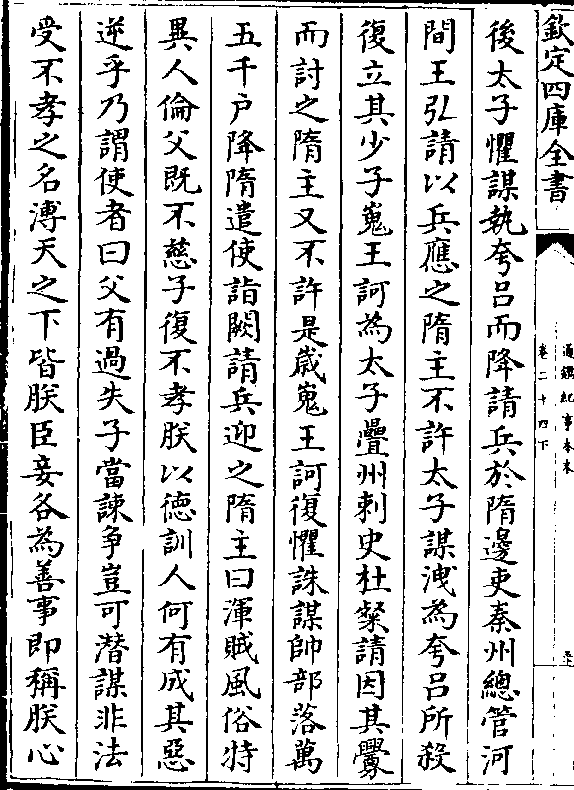 欽定四庫全書
通鑑紀事本末
卷二十四下
後太子懼謀執夸吕而降請兵於隋邊吏秦州總管河
間王弘請以兵應之隋主不許太子謀洩為夸吕所殺
復立其少子嵬王訶為太子疊州刺史杜粲請因其釁
而討之隋主又不許是歲嵬王訶復懼誅謀帥部落萬
五千户降隋遣使詣闕請兵迎之隋主曰渾賊風俗特
異人倫父既不慈子復不孝朕以德訓人何有成其惡
逆乎乃謂使者曰父有過失子當諫争豈可潜謀非法
受不孝之名溥天之下皆朕臣妾各為善事即稱朕心